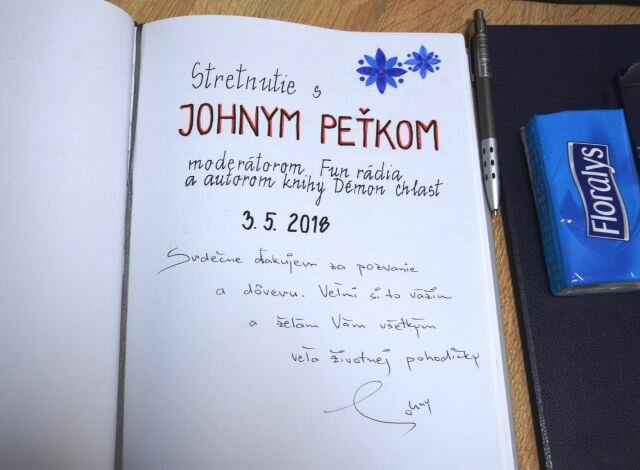 Stretnutie s
JOHNYM PEŤKOM
moderátorom Fun rádia
a autorom knihy Démon chlast
3. 5. 2018
Srdečne ďakujem za pozvanie
a dôveru. Veľmi si to vážim
a želám Vám všetkým
veľa životnej pohodičky
Johny
Floralys